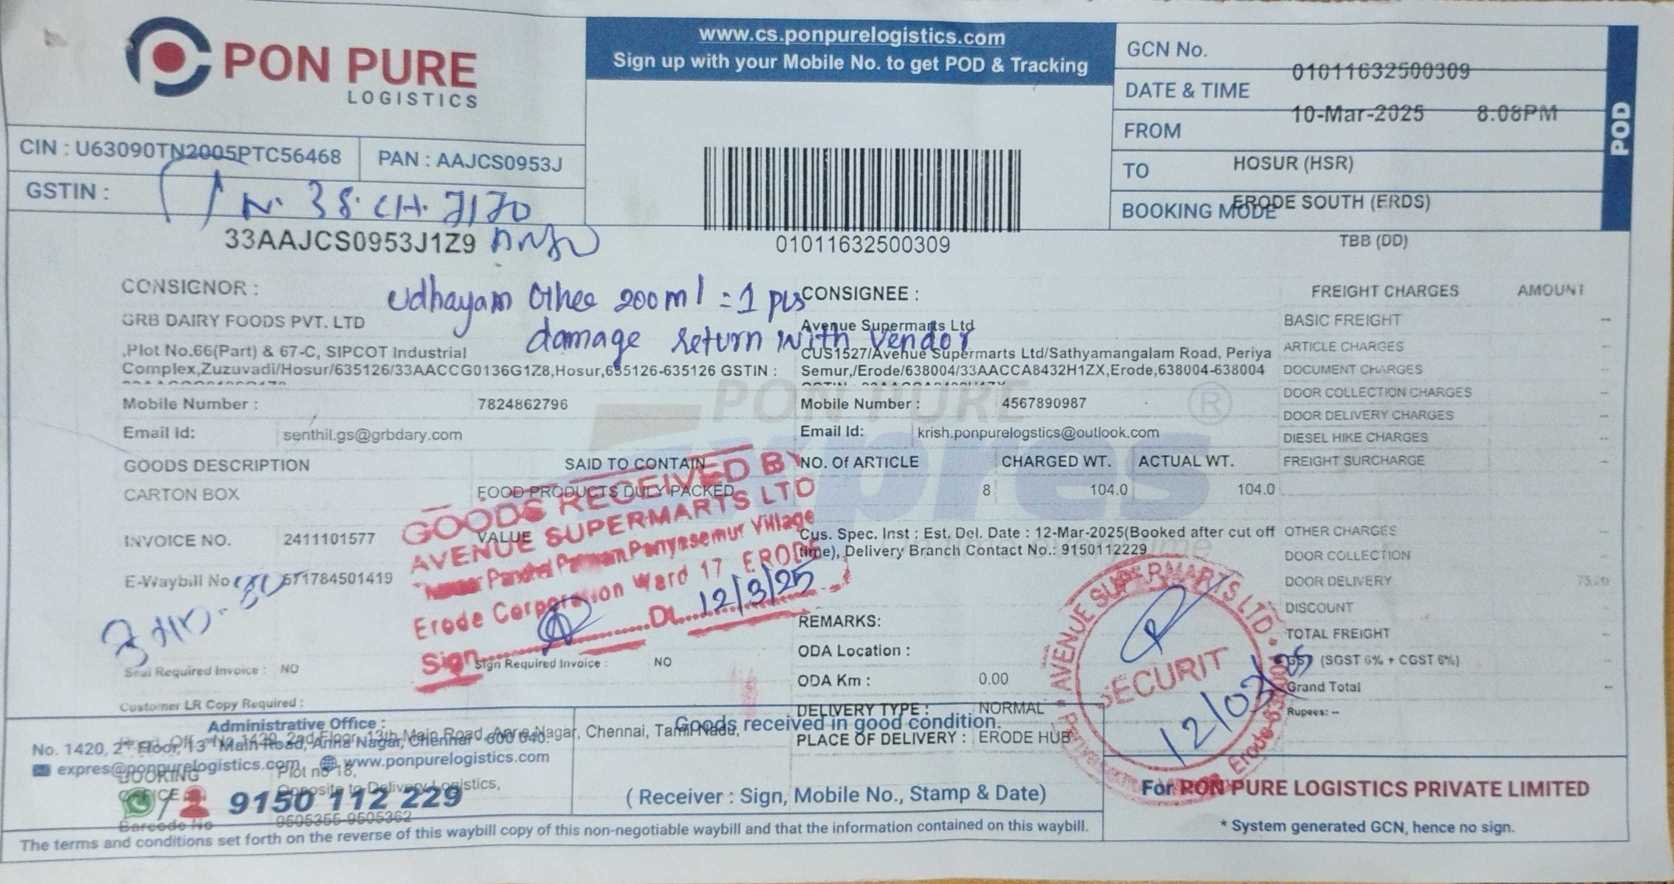 PON PURE
LOGISTICS
www.cs.ponpurelogistics.com
Sign up with your Mobile No. to get POD & Tracking
GCN No.
01011632500309
DATE & TIME
10-Mar-2025 8:08PM
FROM
HOSUR (HSR)
TO
ERODE SOUTH (ERDS)
BOOKING MODE
TBB (DD)
POD
CIN : U63090TN2005PTC56468
PAN : AAJCS0953J
GSTIN :
N. 38. CH. 7170
33AAJCS0953J1Z9
01011632500309
CONSIGNOR :
Udhayam Othee 200ml = 1 pcs
damage return with vendor
GRB DAIRY FOODS PVT. LTD
,Plot No.66(Part) & 67-C, SIPCOT Industrial
Complex,Zuzuvadi/Hosur/635126/33AACCG0136G1Z8,Hosur,635126-635126 GSTIN :
Mobile Number : 7824862796
Email Id: senthil.gs@grbdary.com
CONSIGNEE :
Avenue Supermarts Ltd
CUS1527/Avenue Supermarts Ltd/Sathyamangalam Road, Periya
Semur,/Erode/638004/33AACCA8432H1ZX,Erode,638004-638004
Mobile Number : 4567890987
Email Id: krish.ponpurelogstics@outlook.com
PON PURE
®
GOODS DESCRIPTION
SAID TO CONTAIN
NO. Of ARTICLE
CHARGED WT.
ACTUAL WT.
CARTON BOX
FOOD PRODUCTS DULY PACKED
8
104.0
104.0
INVOICE NO. 2411101577
VALUE
E-Waybill No 571784501419
Cus. Spec. Inst : Est. Del. Date : 12-Mar-2025(Booked after cut off
time), Delivery Branch Contact No.: 9150112229
GOODS RECEIVED BY
AVENUE SUPERMARTS LTD
Periyasemur Village
Erode Corporation Ward 17 ERODE
Dt. 12/3/25
Sign
Seal Required Invoice : NO
Sign Required Invoice : NO
Customer LR Copy Required :
REMARKS:
ODA Location :
ODA Km : 0.00
DELIVERY TYPE : NORMAL
PLACE OF DELIVERY : ERODE HUB
FREIGHT CHARGES AMOUNT
BASIC FREIGHT --
ARTICLE CHARGES --
DOCUMENT CHARGES --
DOOR COLLECTION CHARGES --
DOOR DELIVERY CHARGES --
DIESEL HIKE CHARGES --
FREIGHT SURCHARGE --
OTHER CHARGES --
DOOR COLLECTION --
DOOR DELIVERY
DISCOUNT
TOTAL FREIGHT
GST (SGST 6% + CGST 6%)
Grand Total --
Rupees: --
AVENUE SUPERMARTS LTD.
SECURIT
12/03/25
Administrative Office :
No. 1420, 2nd Floor, 13th Main Road, Anna Nagar, Chennai - 600 040.
expres@ponpurelogistics.com, www.ponpurelogistics.com
BOOKING
OFFICE
Plot no 18,
Opposite to Delivery Logistics,
9150 112 229
Barcode No 9505355-9505362
Goods received in good condition.
( Receiver : Sign, Mobile No., Stamp & Date)
For PON PURE LOGISTICS PRIVATE LIMITED
* System generated GCN, hence no sign.
The terms and conditions set forth on the reverse of this waybill copy of this non-negotiable waybill and that the information contained on this waybill.